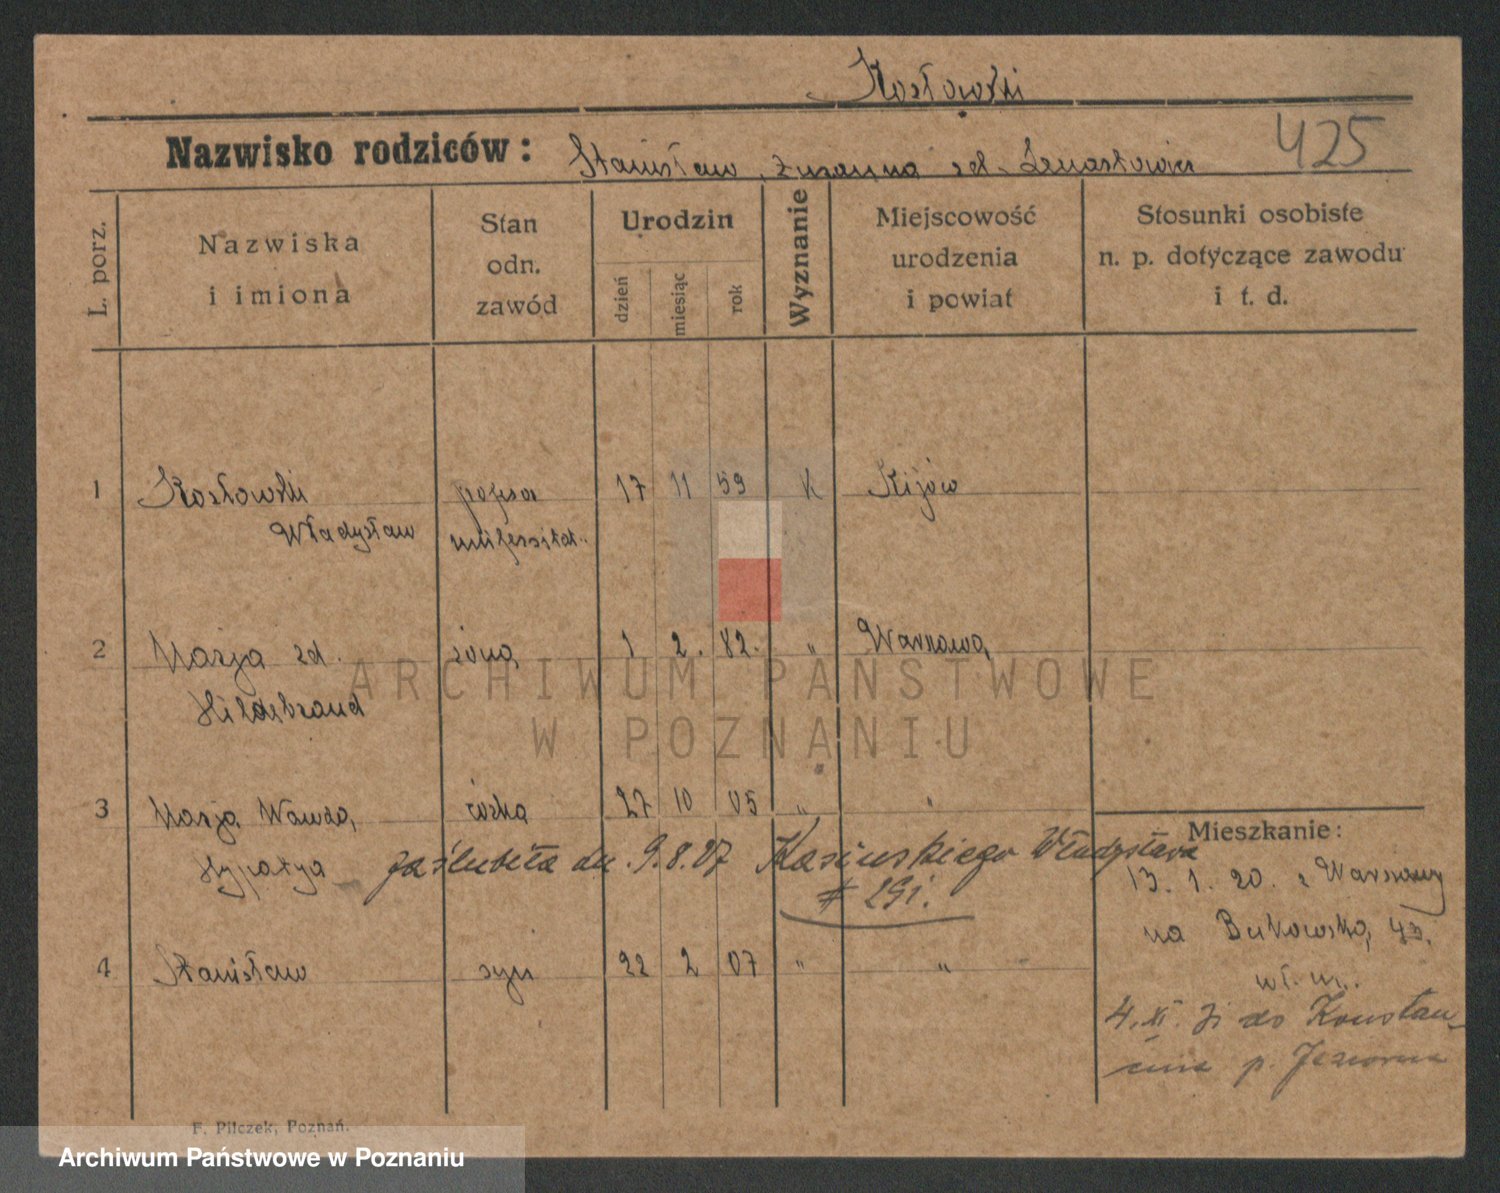 Kozłowski
Nazwisko rodziców: Stanisław, Zuzanna zd.
425
L. porz.
Nazwiska
i imiona
Stan
odn.
zawód
Urodzin
dzień
miesiąc
rok
Wyznanie
Miejscowość
urodzenia
i powiat
Stosunki osobiste
n. p. dotyczące zawodu
i t. d.
1 Kozłowski 17 11 59 K Kijów
Władysław
2 Marja zd. żona 1 2. 82. " Warszawa
Hildebrand
3 Marja Wanda, córka 27 10 05 " "
Hypatya zaślubiła dn. 9.8.27 Kasińskiego Władysława
4 Stanisław syn 22 2 07 " "
Mieszkanie:
13. 1. 20. z Warszawy
na Bukowska,
4. XI. 31 do Konstan-
cina p. Jeziorna
F. Pilczek, Poznań.
ARCHIWUM PAŃSTWOWE
W POZNANIU
Archiwum Państwowe w Poznaniu